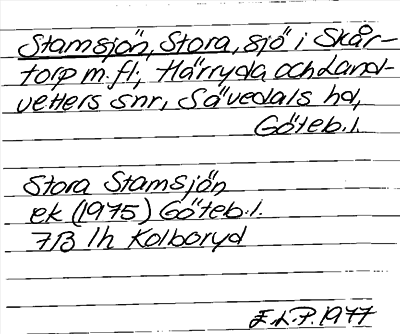 Stamsjön, Stora, sjö i Skår-
torp m.fl., Härryda och Land-
vetters snr, Sävedals hd,
Göteb.l.
Stora Stamsjön
ek (1975) Göteb.l.
7B 1h Kolboryd
E.L.P. 1977